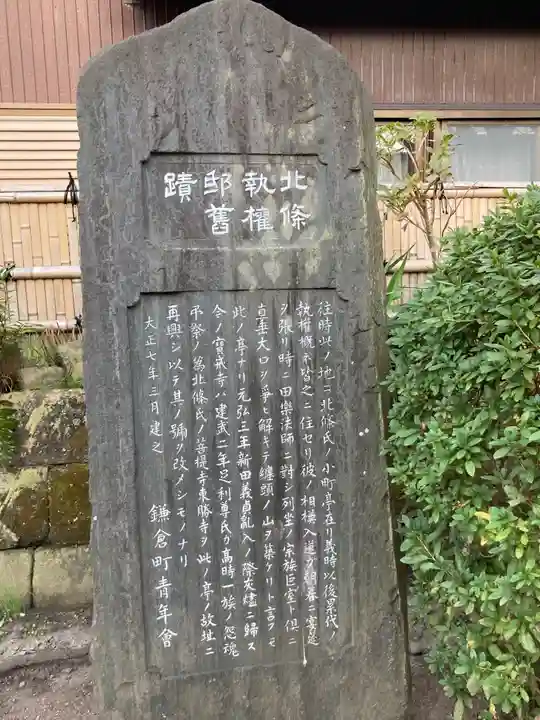 北條
執權
邸舊
蹟
往時此ノ地ニ北條氏ノ小町亭在リ義時以後累代ノ
執權概ネ皆之ニ住セリ彼ノ相模入道ガ朝暮ニ宴筵
ヲ張リ時ニ田樂法師ニ對シ列坐ノ宗族巨室ト倶ニ
直垂大口ヲ爭ヒ解キテ纏頭ノ山ヲ築ケリト言フモ
此ノ亭ナリ元弘三年新田義貞亂入ノ際灰燼ニ歸ス
今ノ寳戒寺ハ建武二年足利尊氏ガ高時一族ノ怨魂
弔祭ノ爲北條氏ノ菩提寺東勝寺ヲ此ノ亭ノ故址ニ
再興シ以テ其ノ號ヲ改メシモノナリ
大正七年三月建之 鎌倉町青年會